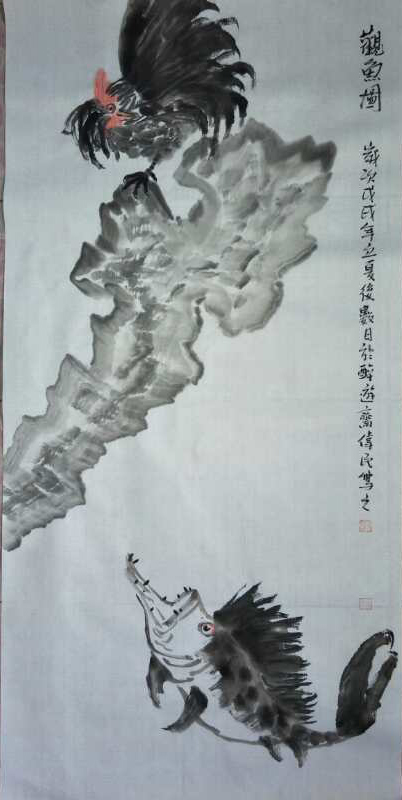 觀魚圖
歲次戊戌年立夏後數日於醉遊齋偉民寫之